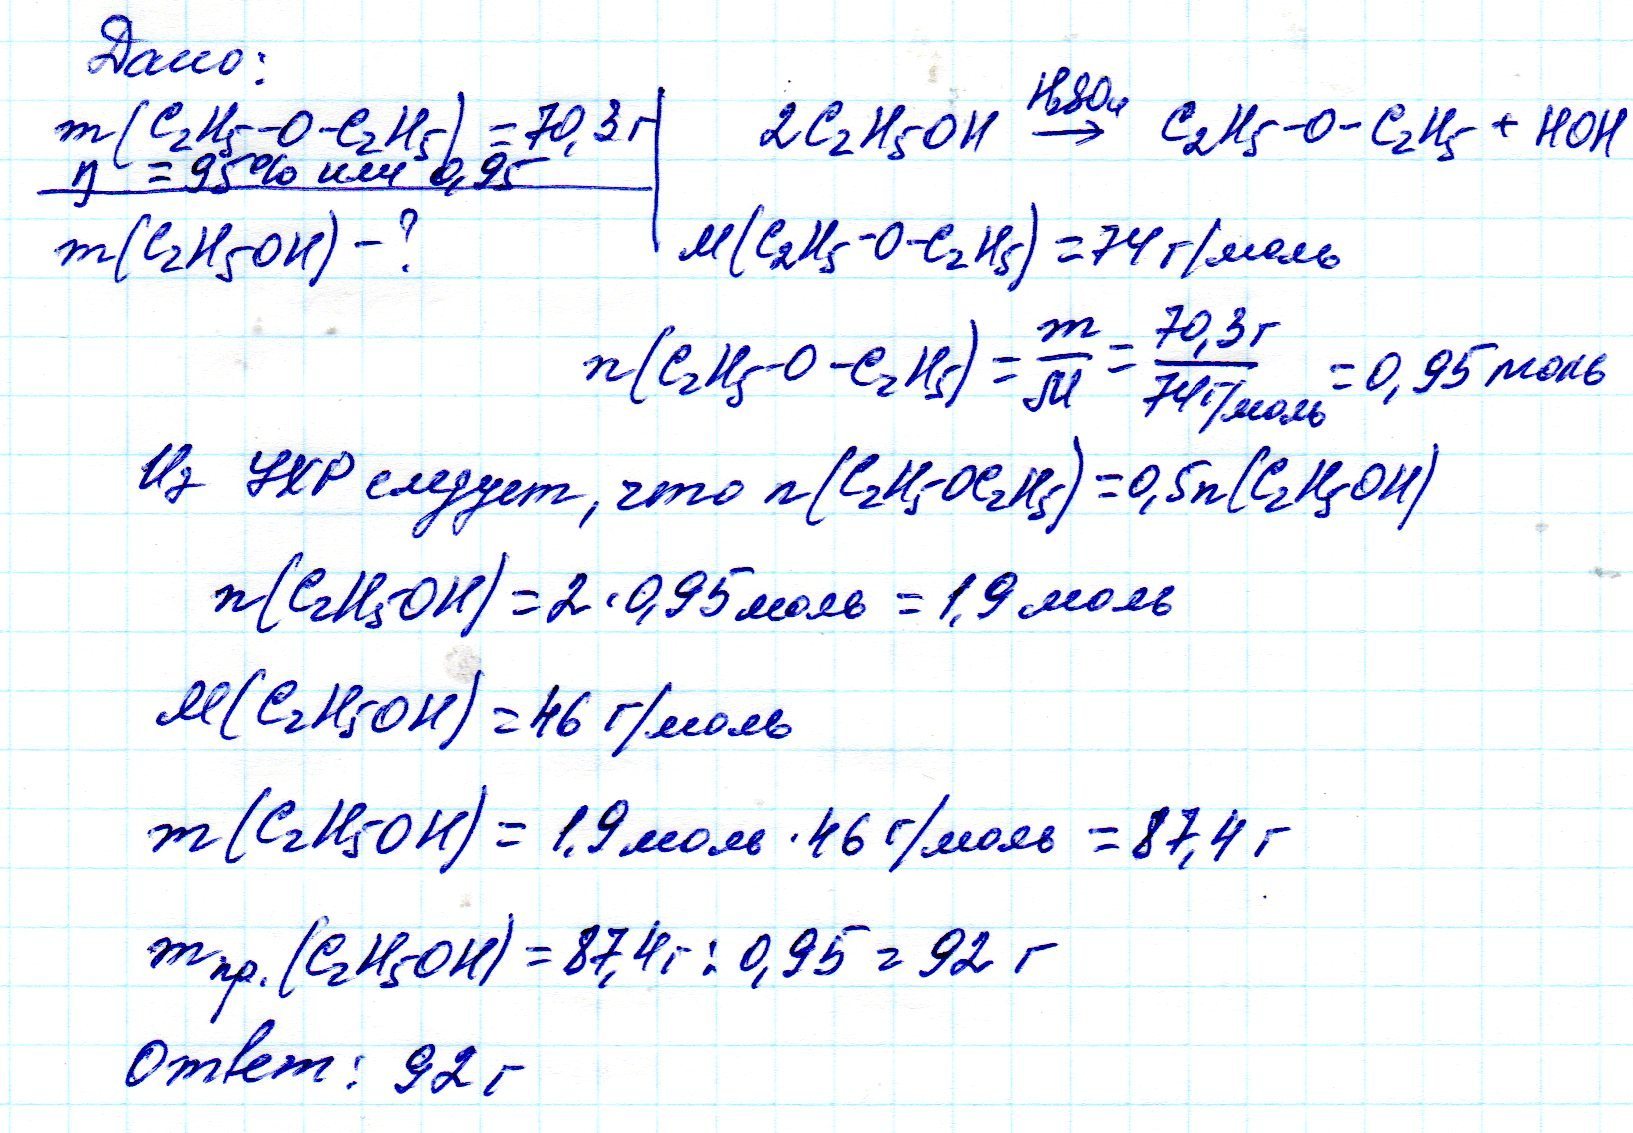 Дано:
m(C₂H₅-O-C₂H₅) = 70,3 г
η = 95% или 0,95
m(C₂H₅OH) - ?
2C₂H₅OH H₂SO₄→ C₂H₅-O-C₂H₅ + HOH
M(C₂H₅-O-C₂H₅) = 74 г/моль
n(C₂H₅-O-C₂H₅) = m/M = 70,3 г/74 г/моль = 0,95 моль
Из УХР следует, что n(C₂H₅OC₂H₅) = 0,5n(C₂H₅OH)
n(C₂H₅OH) = 2·0,95 моль = 1,9 моль
M(C₂H₅OH) = 46 г/моль
m(C₂H₅OH) = 1,9 моль · 46 г/моль = 87,4 г
m пр. (C₂H₅OH) = 87,4 г : 0,95 = 92 г
Ответ: 92 г